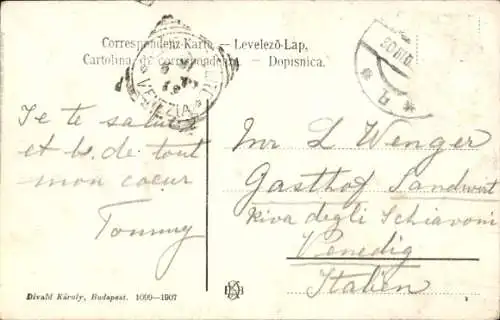 Correspondenz-Karte – Levelező-Lap,
Cartolina di corrispondenza – Dopisnica.
VENEZIA
Je te salue
et b. de tout
mon coeur
Tommy
Mr L Wenger
Gasthof Sandwirt
Riva degli Schiavoni
Venedig
Italien
Divald Károly, Budapest. 1090–1907